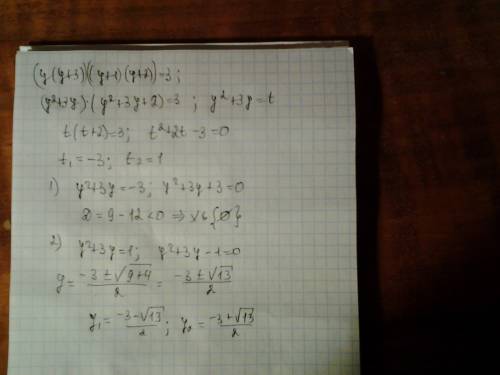 (y(y+3))((y+1)(y+2))=3;
(y²+3y)·(y²+3y+2)=3 ; y²+3y=t
t(t+2)=3; t²+2t-3=0
t₁=-3; t₂=1
1) y²+3y=-3; y²+3y+3=0
D=9-12<0 ⇒ x∈{Ø}
2) y²+3y=1; y²+3y-1=0
y= (-3±√(9+4))/2 = (-3±√13)/2
y₁= (-3-√13)/2 ; y₂= (-3+√13)/2